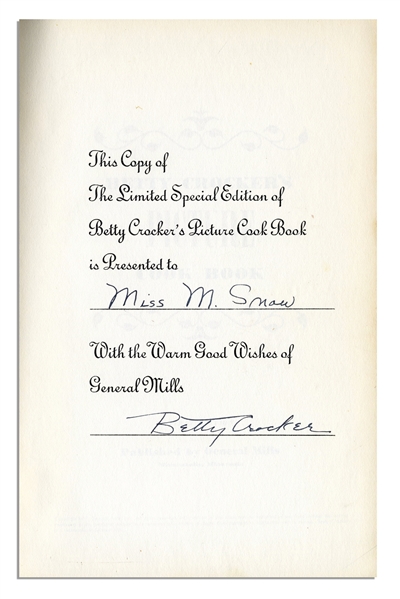 This Copy of
The Limited Special Edition of
Betty Crocker's Picture Cook Book
is Presented to
Miss M. Snow
With the Warm Good Wishes of
General Mills
Betty Crocker